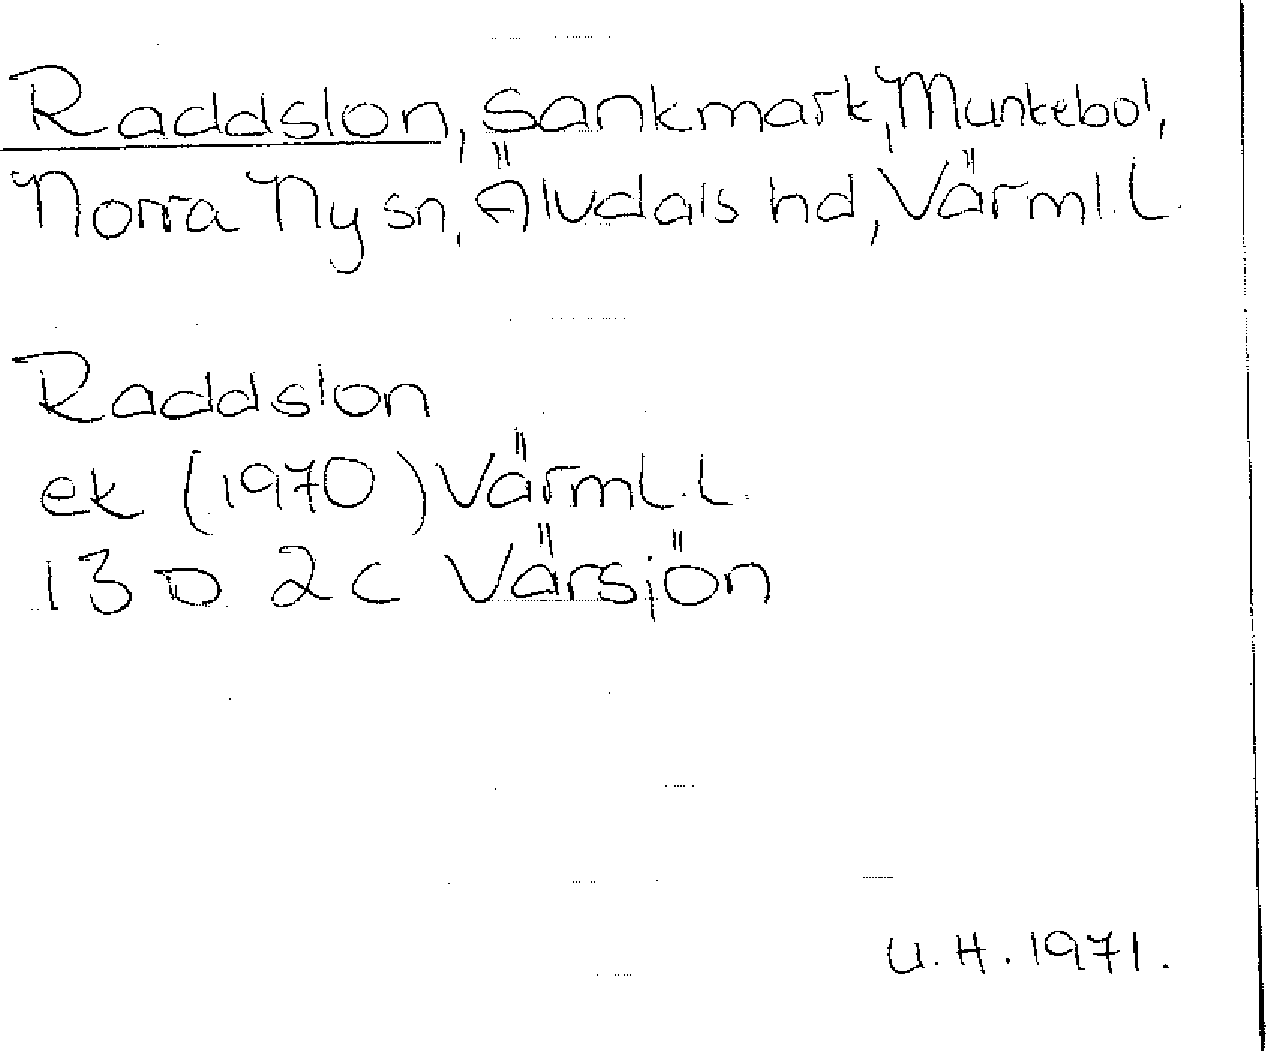 Raddslon, Sankmark, Munkebol,
Norra Ny sn, Älvdals hd, Värml. L.
Raddslon
ek (1970) Värml. L.
13 D 2c Värsjön
U. H. 1971.